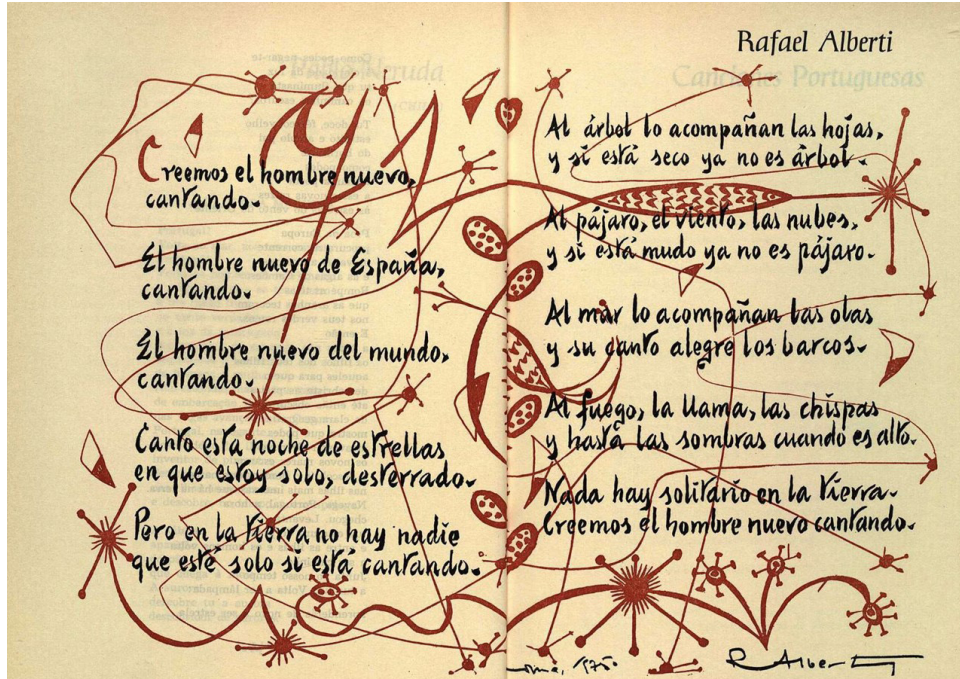 Rafael Alberti
Creemos el hombre nuevo,
cantando.
El hombre nuevo de España,
cantando.
El hombre nuevo del mundo,
cantando.
Canto esta noche de estrellas
en que estoy solo, desterrado.
Pero en la tierra no hay nadie
que esté solo si está cantando.
Al árbol lo acompañan las hojas,
y si está seco ya no es árbol.
Al pájaro, el viento, las nubes,
y si está mudo ya no es pájaro.
Al mar lo acompañan las olas
y su canto alegre los barcos.
Al fuego, la llama, las chispas
y hasta las sombras cuando es alto.
Nada hay solitario en la tierra.
Creemos el hombre nuevo cantando.
Roma, 1975.
R. Alberti